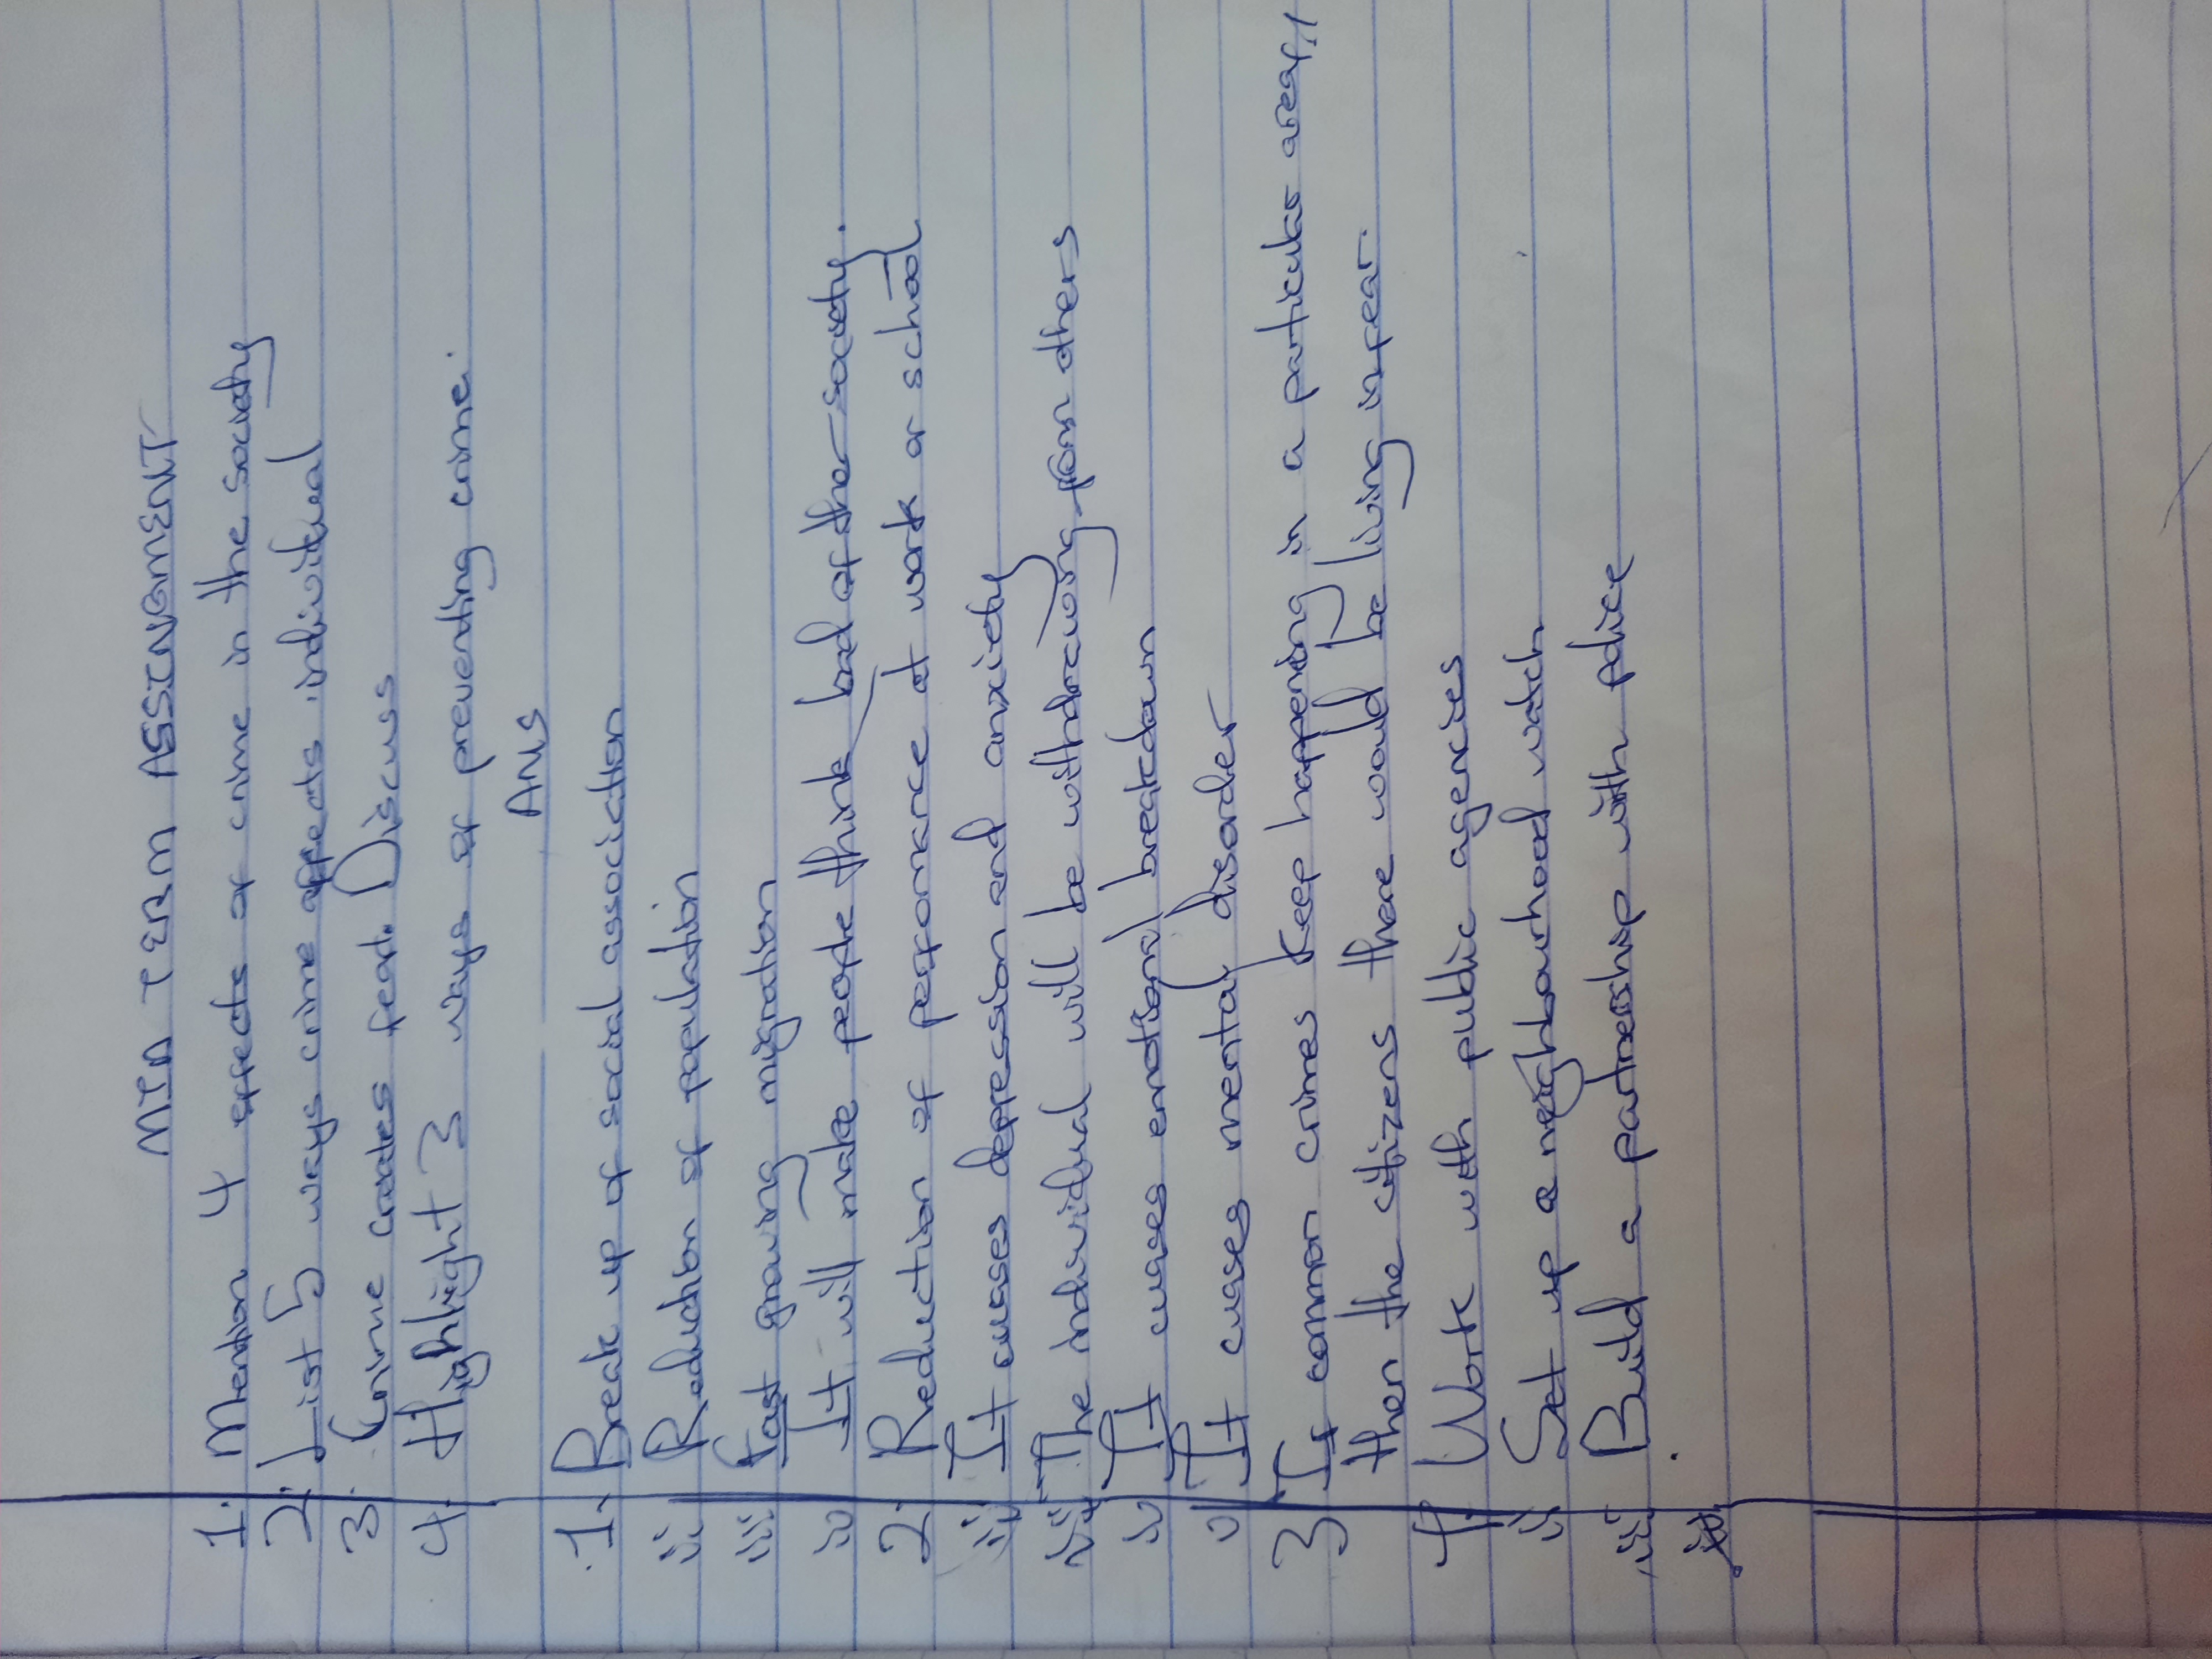 MID TERM ASSINGMENT
1. Mention 4 effects of crime in the society
2. List 5 ways crime affects individual
3. Crime creates fear. Discuss
4. Highlight 3 ways of preventing crime.
Ans
1. Break up of social association
ii Reduction of population
iii Fast growing migration
iv It will make people think bad of ther society.
2. Reduction of performance at work or school
ii It cuases depression and anxiety
iii The individual will be withdrawing from others
iv It cuases emotional breakdown
v It cuases mental disorder
3 If common crimes keep happening in a particular area,
then the citizens there would be living in fear.
4. Work with public agencies
ii Set up a neighbourhood watch
iii Build a partnership with police